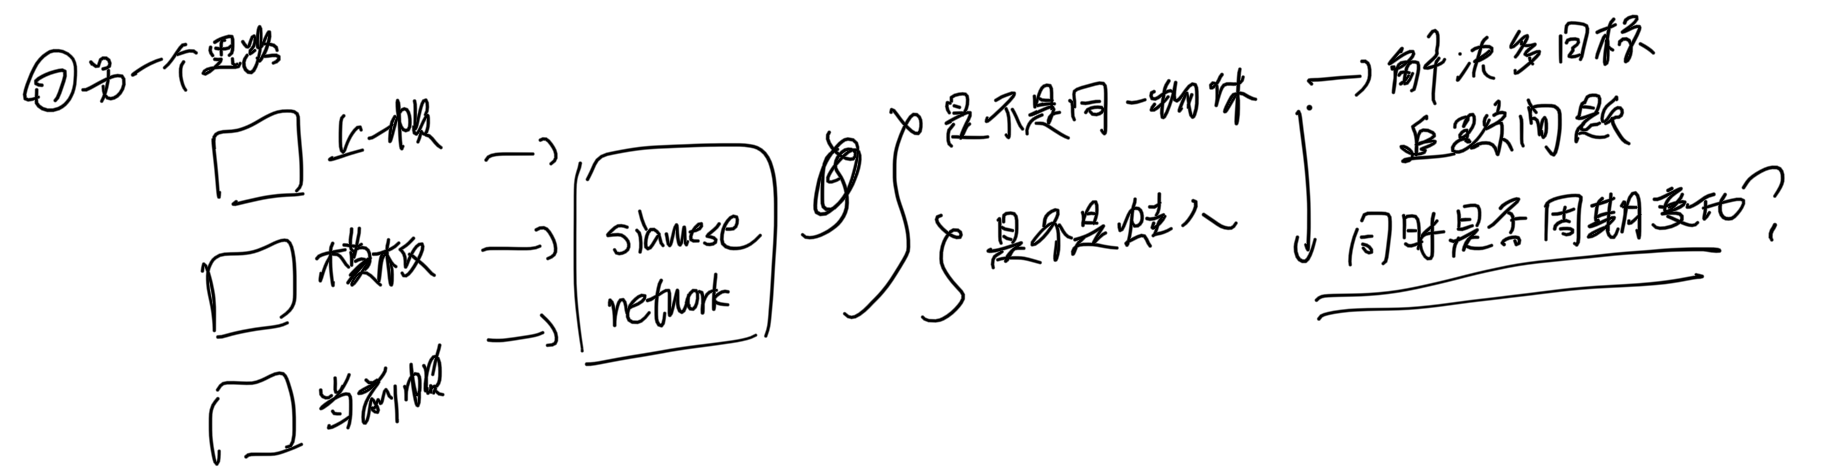 ⑦另一个思路
上一帧
模板
当前帧
siamese
network
是不是同一物体
是不是蛙人
解决多目标
追踪问题
同时是否周期变化?